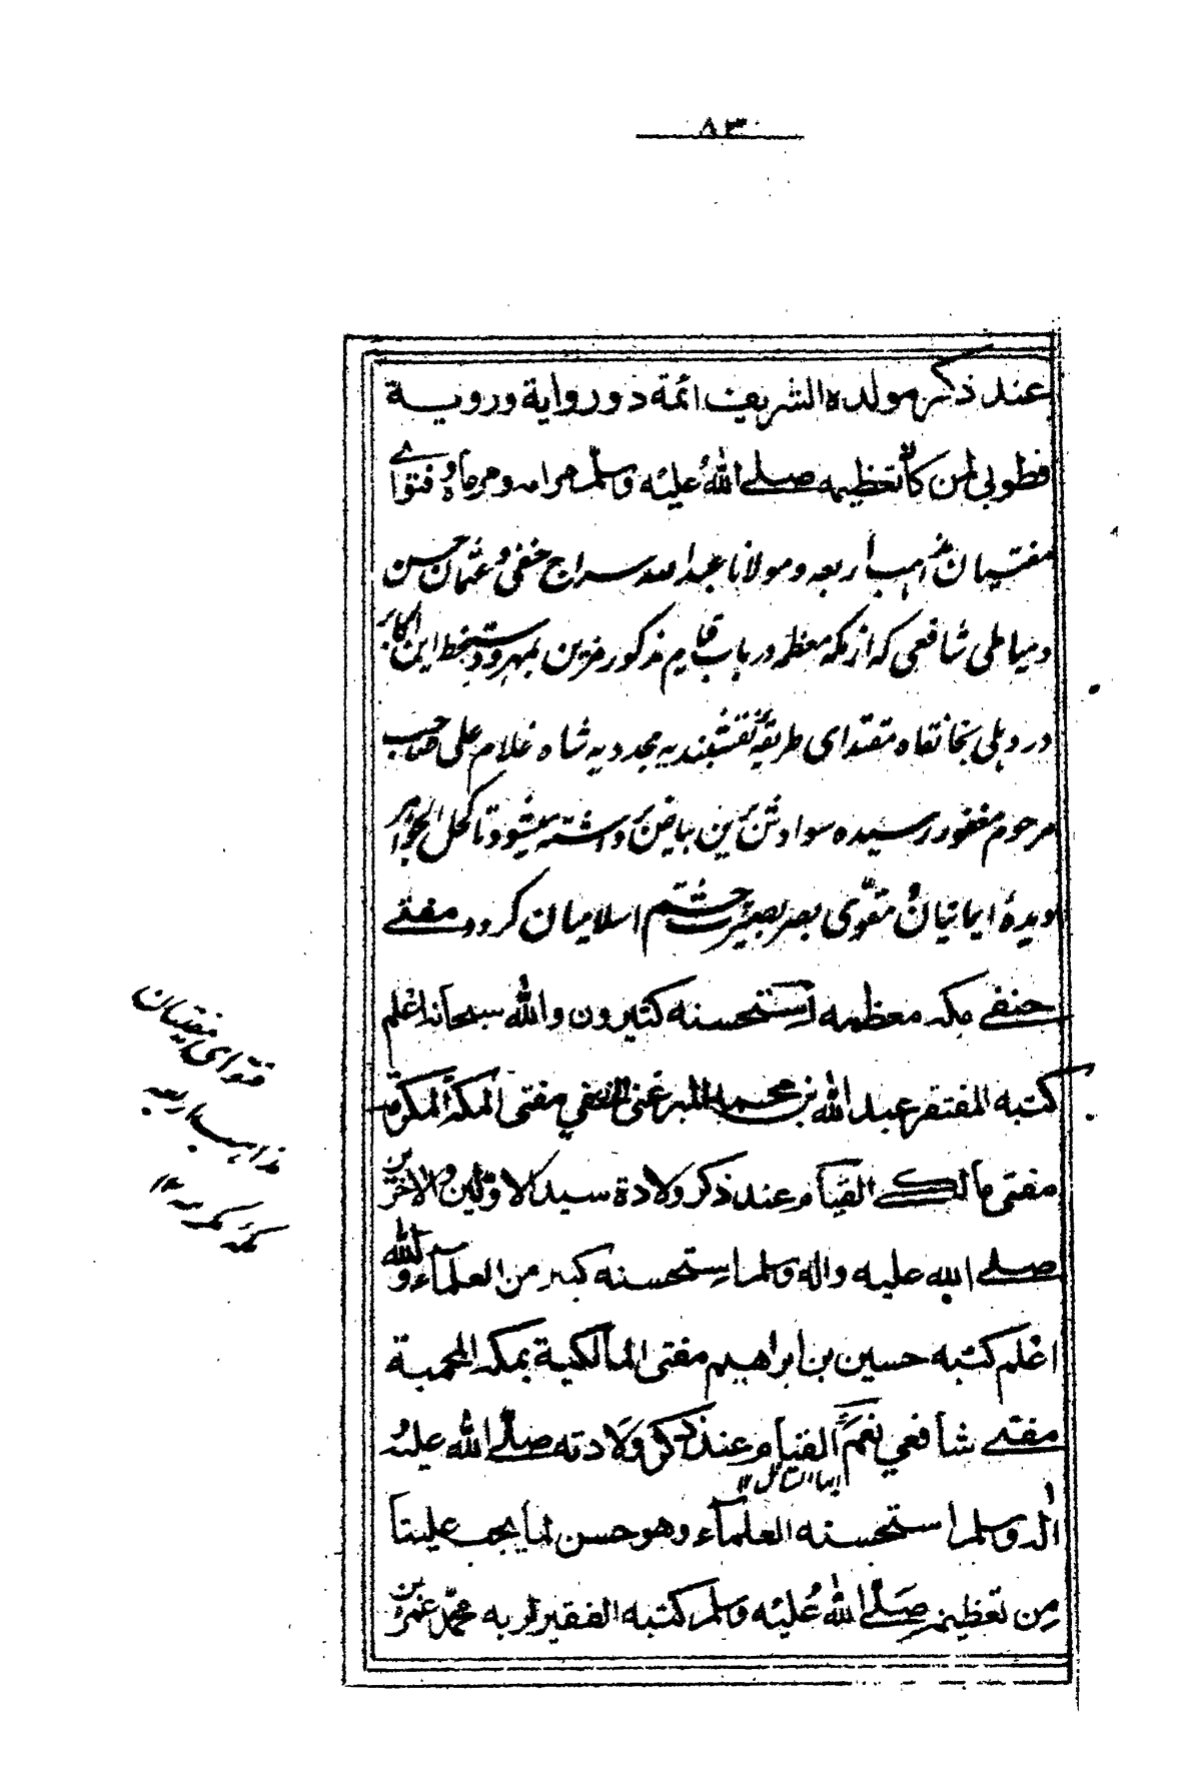 ٨٣
عند ذكر مولده الشريف ائمة ذو رواية وروية
فطوبى لمن كان تعظيمه صلى الله عليه وسلم مرامه ومرماه و فتواے
مفتیان مذاهب اربعه و مولانا عبدالله سراج حنفی و عثمان حسن
دمیاطی شافعی که از مکه معظمه در باب قیام مذکور مزین بمهر و دستخط این اکابر
در دهلی بخانقاه مقتدای طریقهٔ نقشبندیه مجددیه شاه غلام علی صاحب
مرحوم مغفور رسیده سوادش برین بیاض نگاشته میشود تا کحل الجواهر
دیدهٔ ایمانیان و مقوّی بصر بصیرت چشم اسلامیان گردد مفتے
حنفے مکه معظمه استحسنه كثيرون والله سبحانه اعلم
كتبه المفتقر عبد الله بن محمد الميرغنى الحنفي مفتى المكة المكرمة
مفتى مالكے القيام عند ذكر ولادة سيد الاولين والاخرين
صلے الله عليه واله وسلم استحسنه كثير من العلماء والله
اعلم كتبه حسين بن ابراهيم مفتى المالكية بمكة المحمية
مفتے شافعي نعم القيام عند ذكر ولادته صلى الله عليه
ايها السائل ١٢
اله وسلم استحسنه العلماء وهو حسن لما يجب علينا
من تعظيم صلى الله عليه وسلم كتبه الفقير لربه محمد عمر بن
فتوای مفتیان
مذاهب اربعه
مکهٔ مکرمه ١٢